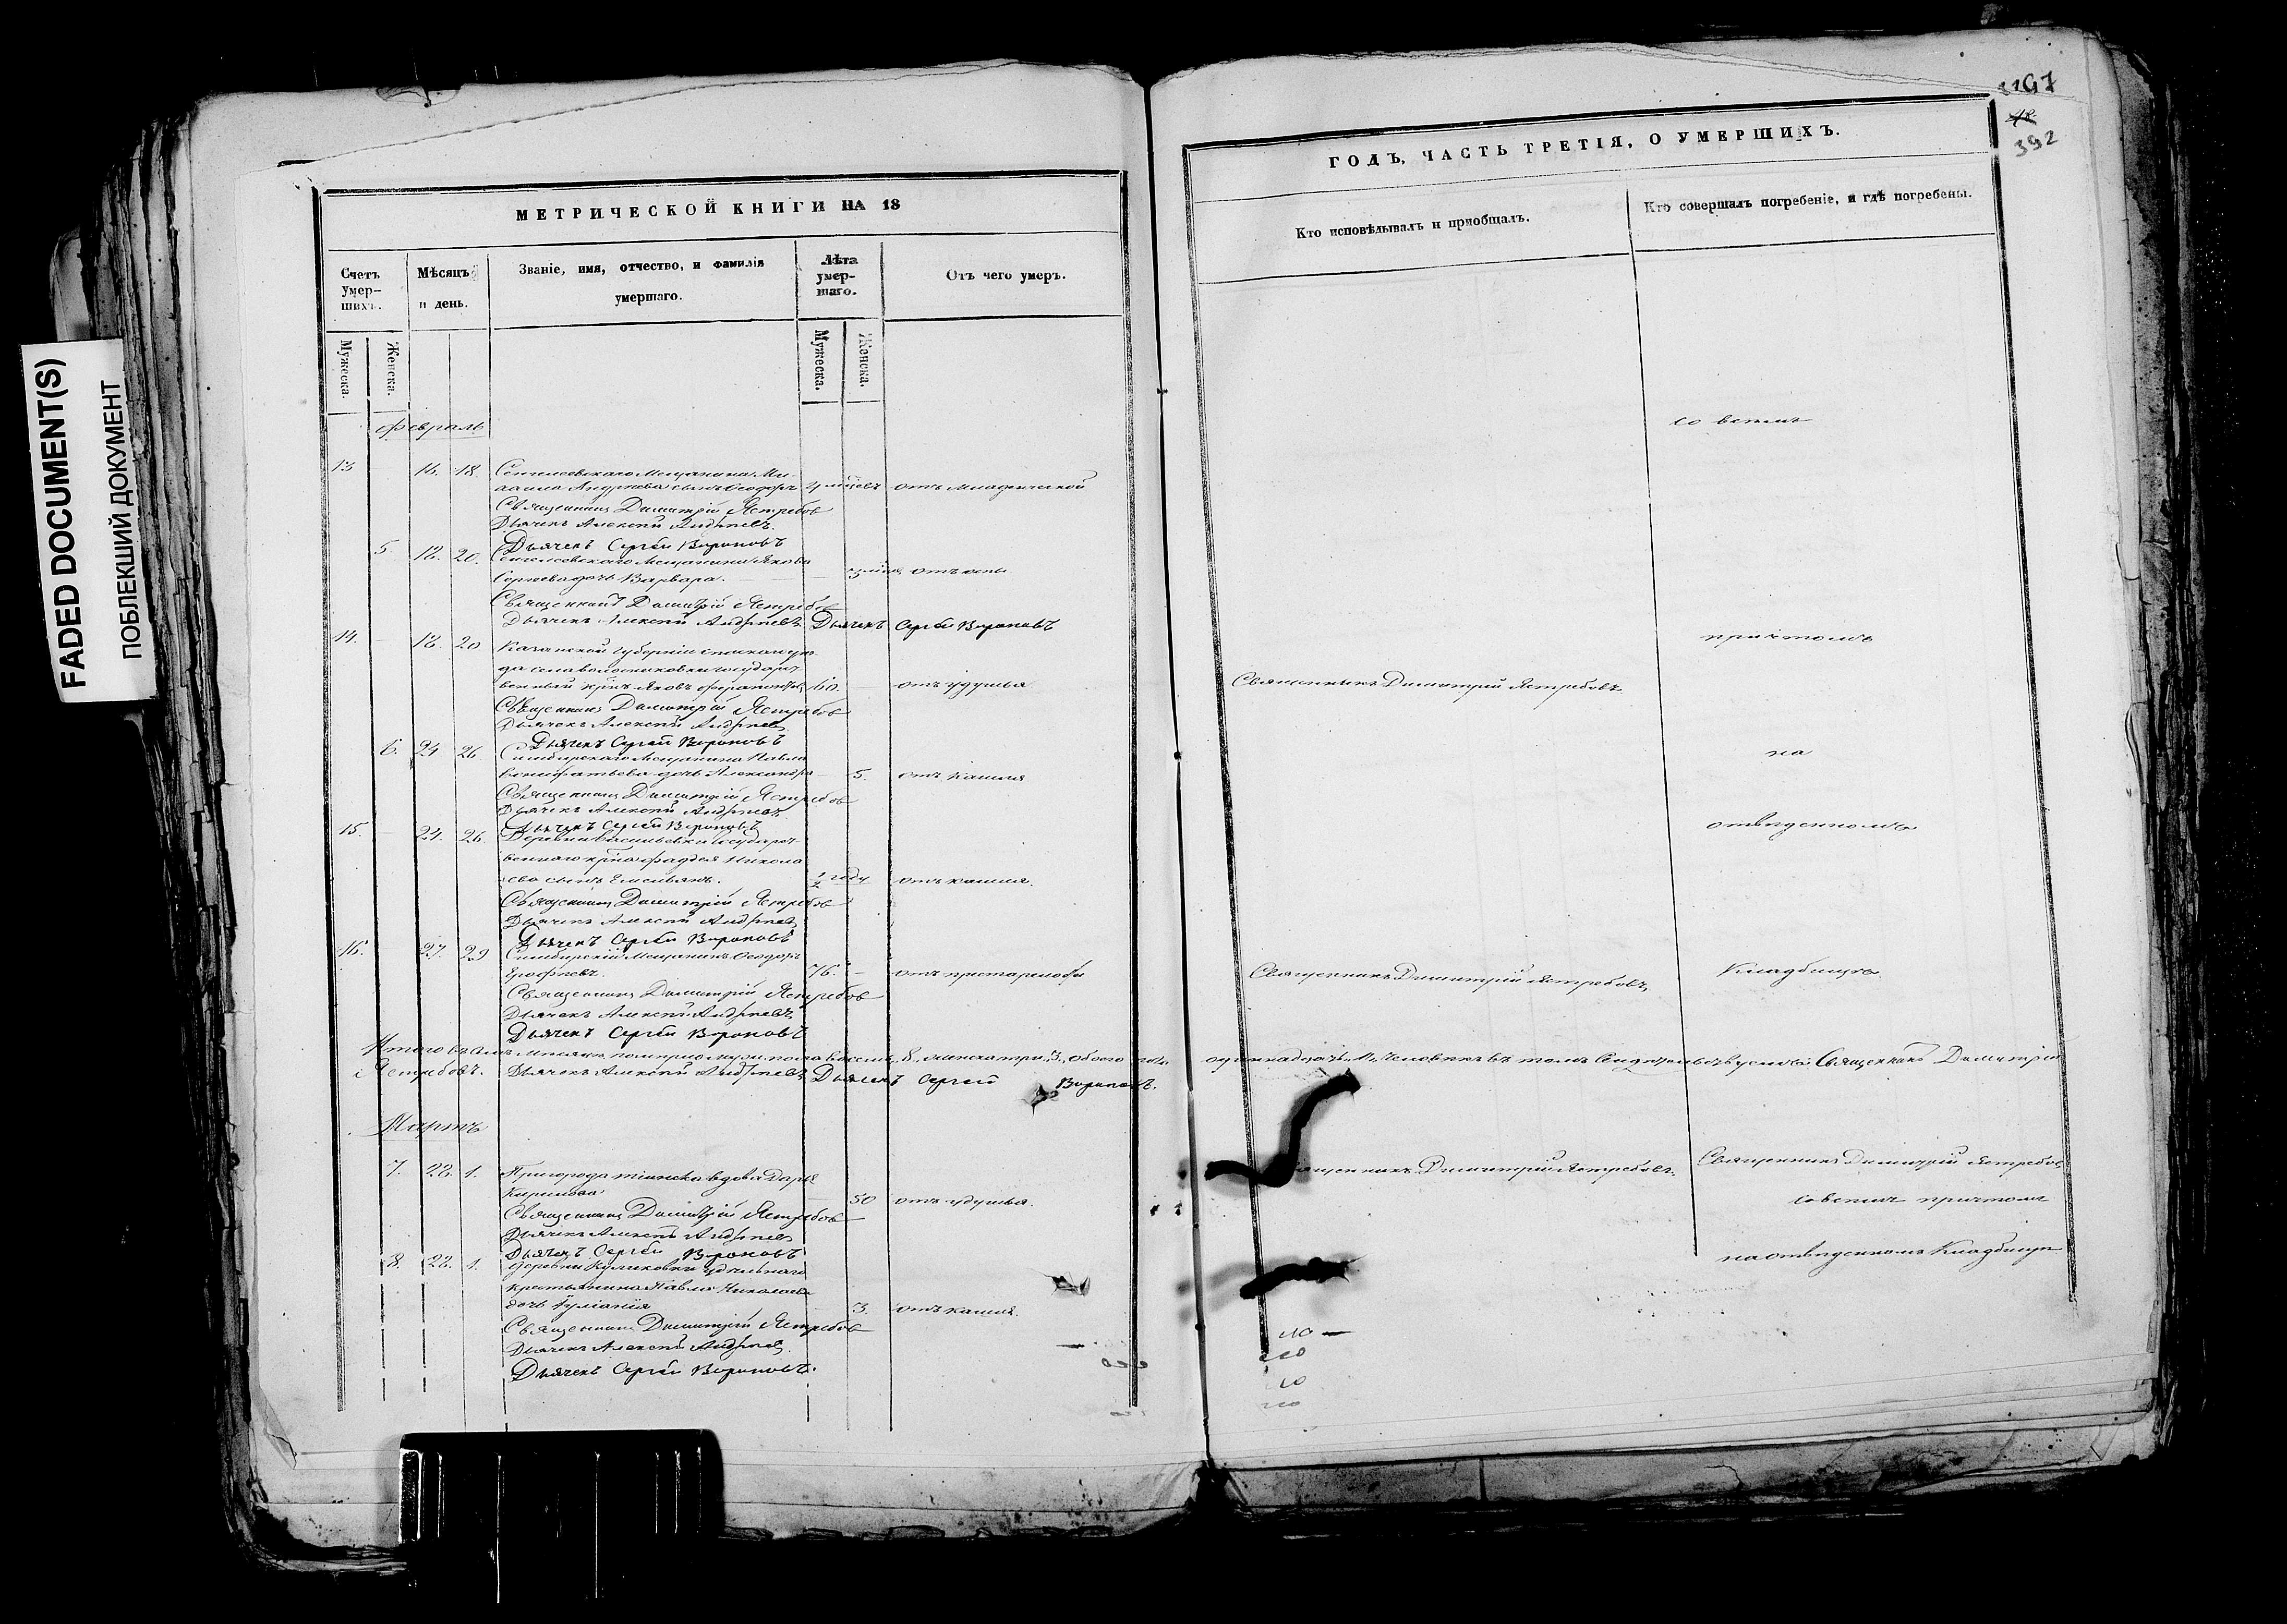 FADED DOCUMENT(S)
ПОБЛЕКШИЙ ДОКУМЕНТ
МЕТРИЧЕСКОЙ КНИГИ НА 18
Счетъ умер-шихъ.
Мѣсяцъ и день.
Званіе, имя, отчество, и фамилія умершаго.
Лѣта умер-шаго.
Отъ чего умеръ.
Мужеска.
Женска.
Мужеска.
Женска.
Февраль
13 16. 18. Сенгилеевскаго Мещанина Ми-
хаила Андреева сынъ Ѳеодоръ отъ младенческой
Священникъ Димитрій Ястребовъ
Дьячекъ Алексѣй Андреевъ
Дьячекъ Сергѣй Вороновъ
5. 18. 20. Сенгилеевскаго Мещанина Якова
Сергеева дочь Варвара. отъ оспы
Священникъ Димитрій Ястребовъ
Дьячекъ Алексѣй Андреевъ Дьячекъ Сергѣй Вороновъ
14. 18. 20 Казанской губерніи
государст-
венный кр͠нъ Яковъ 60. отъ удушья
Священникъ Димитрій Ястребовъ
Дьячекъ Алексѣй Андреевъ
Дьячекъ Сергѣй Вороновъ
6. 24 26 Симбирскаго Мещанина Павла
Вонифатьева дочь Александра 5. отъ кашля
Священникъ Димитрій Ястребовъ
Дьячекъ Алексѣй Андреевъ
Дьячекъ Сергѣй Вороновъ
15. 24. 26. Деревни Васильевки государст-
веннаго кр͠на Фаддея Никола
ева сынъ Емельянъ. 1/2 году отъ кашля.
Священникъ Димитрій Ястребовъ
Дьячекъ Алексѣй Андреевъ
Дьячекъ Сергѣй Вороновъ
16. 27. 29 Симбирскій Мещанинъ Ѳеодоръ
Ерофеевъ. 76. отъ престарелости
Священникъ Димитрій Ястребовъ
Дьячекъ Алексѣй Андреевъ
Дьячекъ Сергѣй Вороновъ
Итого въ семъ месяцѣ померло муж. пола восемь, 8. женска три, 3. обоего пола
Ястребовъ. Дьячекъ Алексѣй Андреевъ Дьячекъ Сергѣй Вороновъ.
Мартъ
7. 28. 1. Пригорода Тіинска вдова Дарья
Кирилова 50 отъ удушья.
Священникъ Димитрій Ястребовъ
Дьячекъ Алексѣй Андреевъ
Дьячекъ Сергѣй Вороновъ
8. 28. 1. Деревни Куликовки удѣльнаго
крестьянина Павла Николаева
дочь Іуліанія 3. отъ кашля.
Священникъ Димитрій Ястребовъ
Дьячекъ Алексѣй Андреевъ.
Дьячекъ Сергѣй Вороновъ.
1197
392
ГОДЪ, ЧАСТЬ ТРЕТІЯ, О УМЕРШИХЪ.
Кто исповѣдывалъ и пріобщалъ.
Кто совершалъ погребеніе, и гдѣ погребены.
со всемъ
причтомъ
Священникъ Димитрій Ястребовъ.
на
отведенномъ
Священникъ Димитрій Ястребовъ. Кладбищѣ.
одиннадцать 11. человѣкъ въ томъ Свидѣтельствуемъ: Священникъ Димитрій
Священникъ Димитрій Ястребовъ. Священникъ Димитрій Ястребовъ
со всемъ причтомъ
на отведенномъ Кладбищѣ